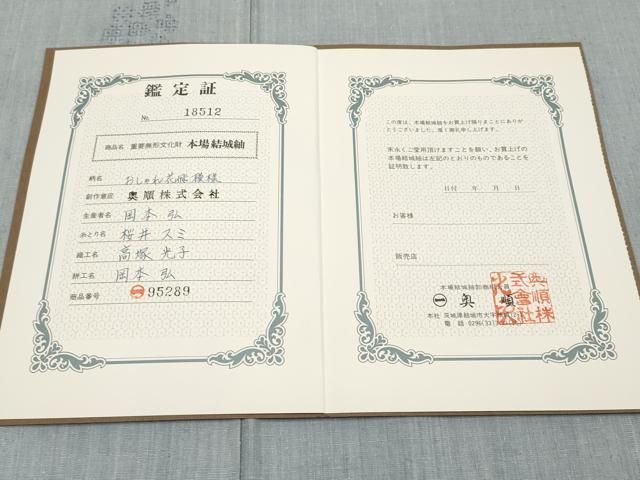 鑑定証
No. 18512
商品名 重要無形文化財 本場結城紬
柄名 おしゃれ花㐂模様
創作意匠 奥順株式会社
生産者名 岡本 弘
糸とり名 桜井 スミ
織工名 高塚 光子
絣工名 岡本 弘
商品番号 95289
この度は、本場結城紬をお買上げ賜りまことにありが
とうございました。厚く御礼申し上げます。
末永くご愛用頂けますことを願い、お買上げの
本場結城紬は左記のとおりのものであることを
証明致します。
日付 年 月 日
お客様
販売店
本場結城紬卸商組合員
奥順
本社 茨城県結城市大字結城
電話 0296(33)
奥順株式會社